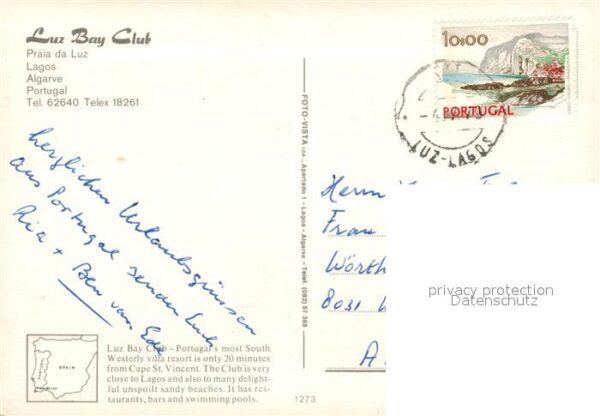 Luz Bay Club
Praia da Luz
Lagos
Algarve
Portugal
Tel. 62640 Telex 18261
herzlichen Urlaubsgrüssen
aus Portugal senden Euch
Ria + Ben van
Luz Bay Club – Portugal's most South
Westerly villa resort is only 20 minutes
from Cape St. Vincent. The Club is very
close to Lagos and also to many delight-
ful unspoilt sandy beaches. It has res-
taurants, bars and swimming pools.
SPAIN
PORTUGAL
FOTO-VISTA Lda., Apartado 1 - Lagoa - Algarve - Telef. (082) 57 388
1273
10$00
PORTUGAL
LUZ-LAGOS
Herrn
Frau
Wörth
8031
privacy protection
Datenschutz